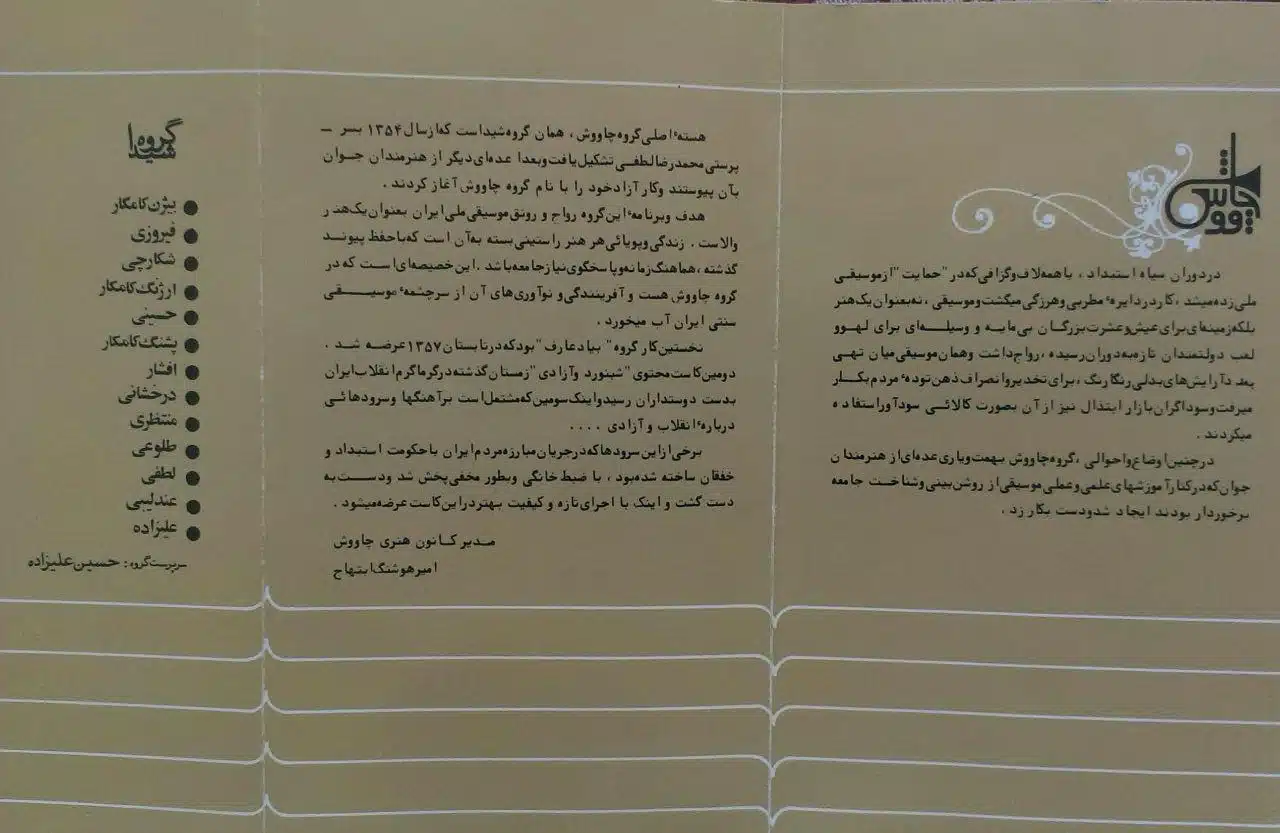 چاووش
دردوران سیاه استبداد ، باهمه‌لاف‌وگزافی‌که‌در "حمایت "ازموسیقی
ملی‌زده‌میشد ،کاردردایره‌ٔ مطربی‌وهرزگی‌میگشت‌وموسیقی ، نه‌بعنوان‌یک‌هنر
بلکه‌زمینه‌ای‌برای‌عیش‌وعشرت‌بزرگان بی‌مایه و وسیله‌ای برای لهوو
لعب دولتمندان تازه‌به‌دوران‌رسیده ،رواج‌داشت وهمان‌موسیقی‌میان تهی
بعدباآرایش‌های‌بدلی‌رنگارنگ ،برای‌تخدیروانصراف‌ذهن‌توده‌ٔ مردم‌بکار
میرفت‌وسوداگران‌بازار ابتذال نیز ازآن بصورت کالائی سودآوراستفاده
میکردند .
درچنین‌اوضاع‌واحوالی ،گروه‌چاووش بهمت‌ویاری‌عده‌ای‌از هنرمندان
جوان‌که‌درکنارآموزشهای‌علمی‌وعملی‌موسیقی‌از روشن‌بینی‌وشناخت جامعه
برخوردار بودند ایجاد شدودست بکار زد .
هسته‌ٔ اصلی‌گروه‌چاووش ، همان گروه‌شیداست که‌ازسال ۱۳۵۴ بسر –
پرستی‌محمدرضا‌لطفی‌تشکیل‌یافت‌وبعدا عده‌ای‌دیگر از هنرمندان جوان
بآن پیوستند وکار آزادخود را با نام گروه چاووش آغاز کردند .
هدف وبرنامه‌ٔ این‌گروه رواج و رونق‌موسیقی‌ملی‌ایران بعنوان‌یک‌هنر
والاست . زندگی‌وپویائی‌هر هنر راستینی‌بسته به‌آن است که‌باحفظ پیوند
گذشته ،هماهنگ‌زمانه‌وپاسخگوی‌نیازجامعه‌باشد .این‌خصیصه‌ای‌است که‌در
گروه چاووش هست و آفرینندگی‌و نوآوری‌های آن از سرچشمه‌ٔ موسیقی
سنتی ایران آب میخورد .
نخستین‌کار گروه" بیادعارف "بودکه‌درتابستان ۱۳۵۷عرضه شد .
دومین‌کاست‌محتوی "شبنورد وآزادی "زمستان‌گذشته‌درگرماگرم‌انقلاب‌ایران
بدست دوستداران رسیدواینک‌سومین‌که‌مشتمل‌است برآهنگها وسرودهائی
درباره‌ٔ انقلاب و آزادی ....
برخی‌ازاین‌سرودهاکه‌درجریان‌مبارزه‌مردم‌ایران باحکومت استبداد و
خفقان ساخته شده‌بود ، با ضبط خانگی وبطور مخفی‌پخش شد ودست‌به
دست گشت و اینک با اجرای‌تازه و کیفیت بهتردراین‌کاست عرضه‌میشود .
مدیرکانون هنری چاووش
امیرهوشنگ‌ابتهاج
گروه شیدا
● بیژن‌کامکار
● فیروزی
● شکارچی
● ارژنگ‌کامکار
● حسینی
● پشنگ‌کامکار
● افشار
● درخشانی
● منتظری
● طلوعی
● لطفی
● عندلیبی
● علیزاده
سرپرست‌گروه : حسین‌علیزاده